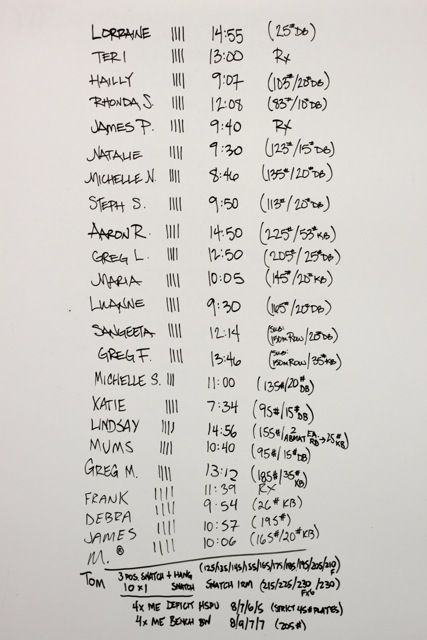 LORRAINE |||| 14:55 (25# DB)
TERI |||| 13:00 Rx
HAILLY |||| 9:07 (103#/20# DB)
RHONDA S. |||| 12:08 (83#/10# DB)
JAMES P. |||| 9:40 RX
NATALIE |||| 9:30 (123#/15# DB)
MICHELLE N. |||| 8:46 (135#/20# DB)
STEPH S. |||| 9:50 (113#/20# DB)
AARON R. |||| 14:50 (225#/53# KB)
GREG L. |||| 12:50 (205#/25# DB)
MARIA |||| 10:05 (145#/20# KB)
LUANNE |||| 9:30 (165#/20# DB)
SANGEETA |||| 12:14 (SUB: 150m ROW/20# DB)
GREG F. |||| 13:46 (SUB: 150m ROW/35# KB)
MICHELLE S. ||| 11:00 (135#/20# DB)
KATIE |||| 7:34 (95#/15# DB)
LINDSAY |||| 14:56 (155#/2 ABMAT EA. RD → 25# KB)
MUMS |||| 10:40 (95#/15# DB)
GREG M. |||| 13:12 (185#/35# KB)
FRANK |||| 11:39 RX
DEBRA |||| 9:54 (26# KB)
JAMES |||| 10:57 (195#)
M. |||| 10:06 (165#/20# KB)
TOM 3 POS. SNATCH + HANG SNATCH (125/135/145/155/165/175/185/195/205/210 F)
10 x 1 SNATCH 1RM (215/225/230 Fx6/230)
4x ME DEFICIT HSPU 8/7/6/5 (STRICT 45# PLATES)
4x ME BENCH BW 8/9/7/7 (205#)